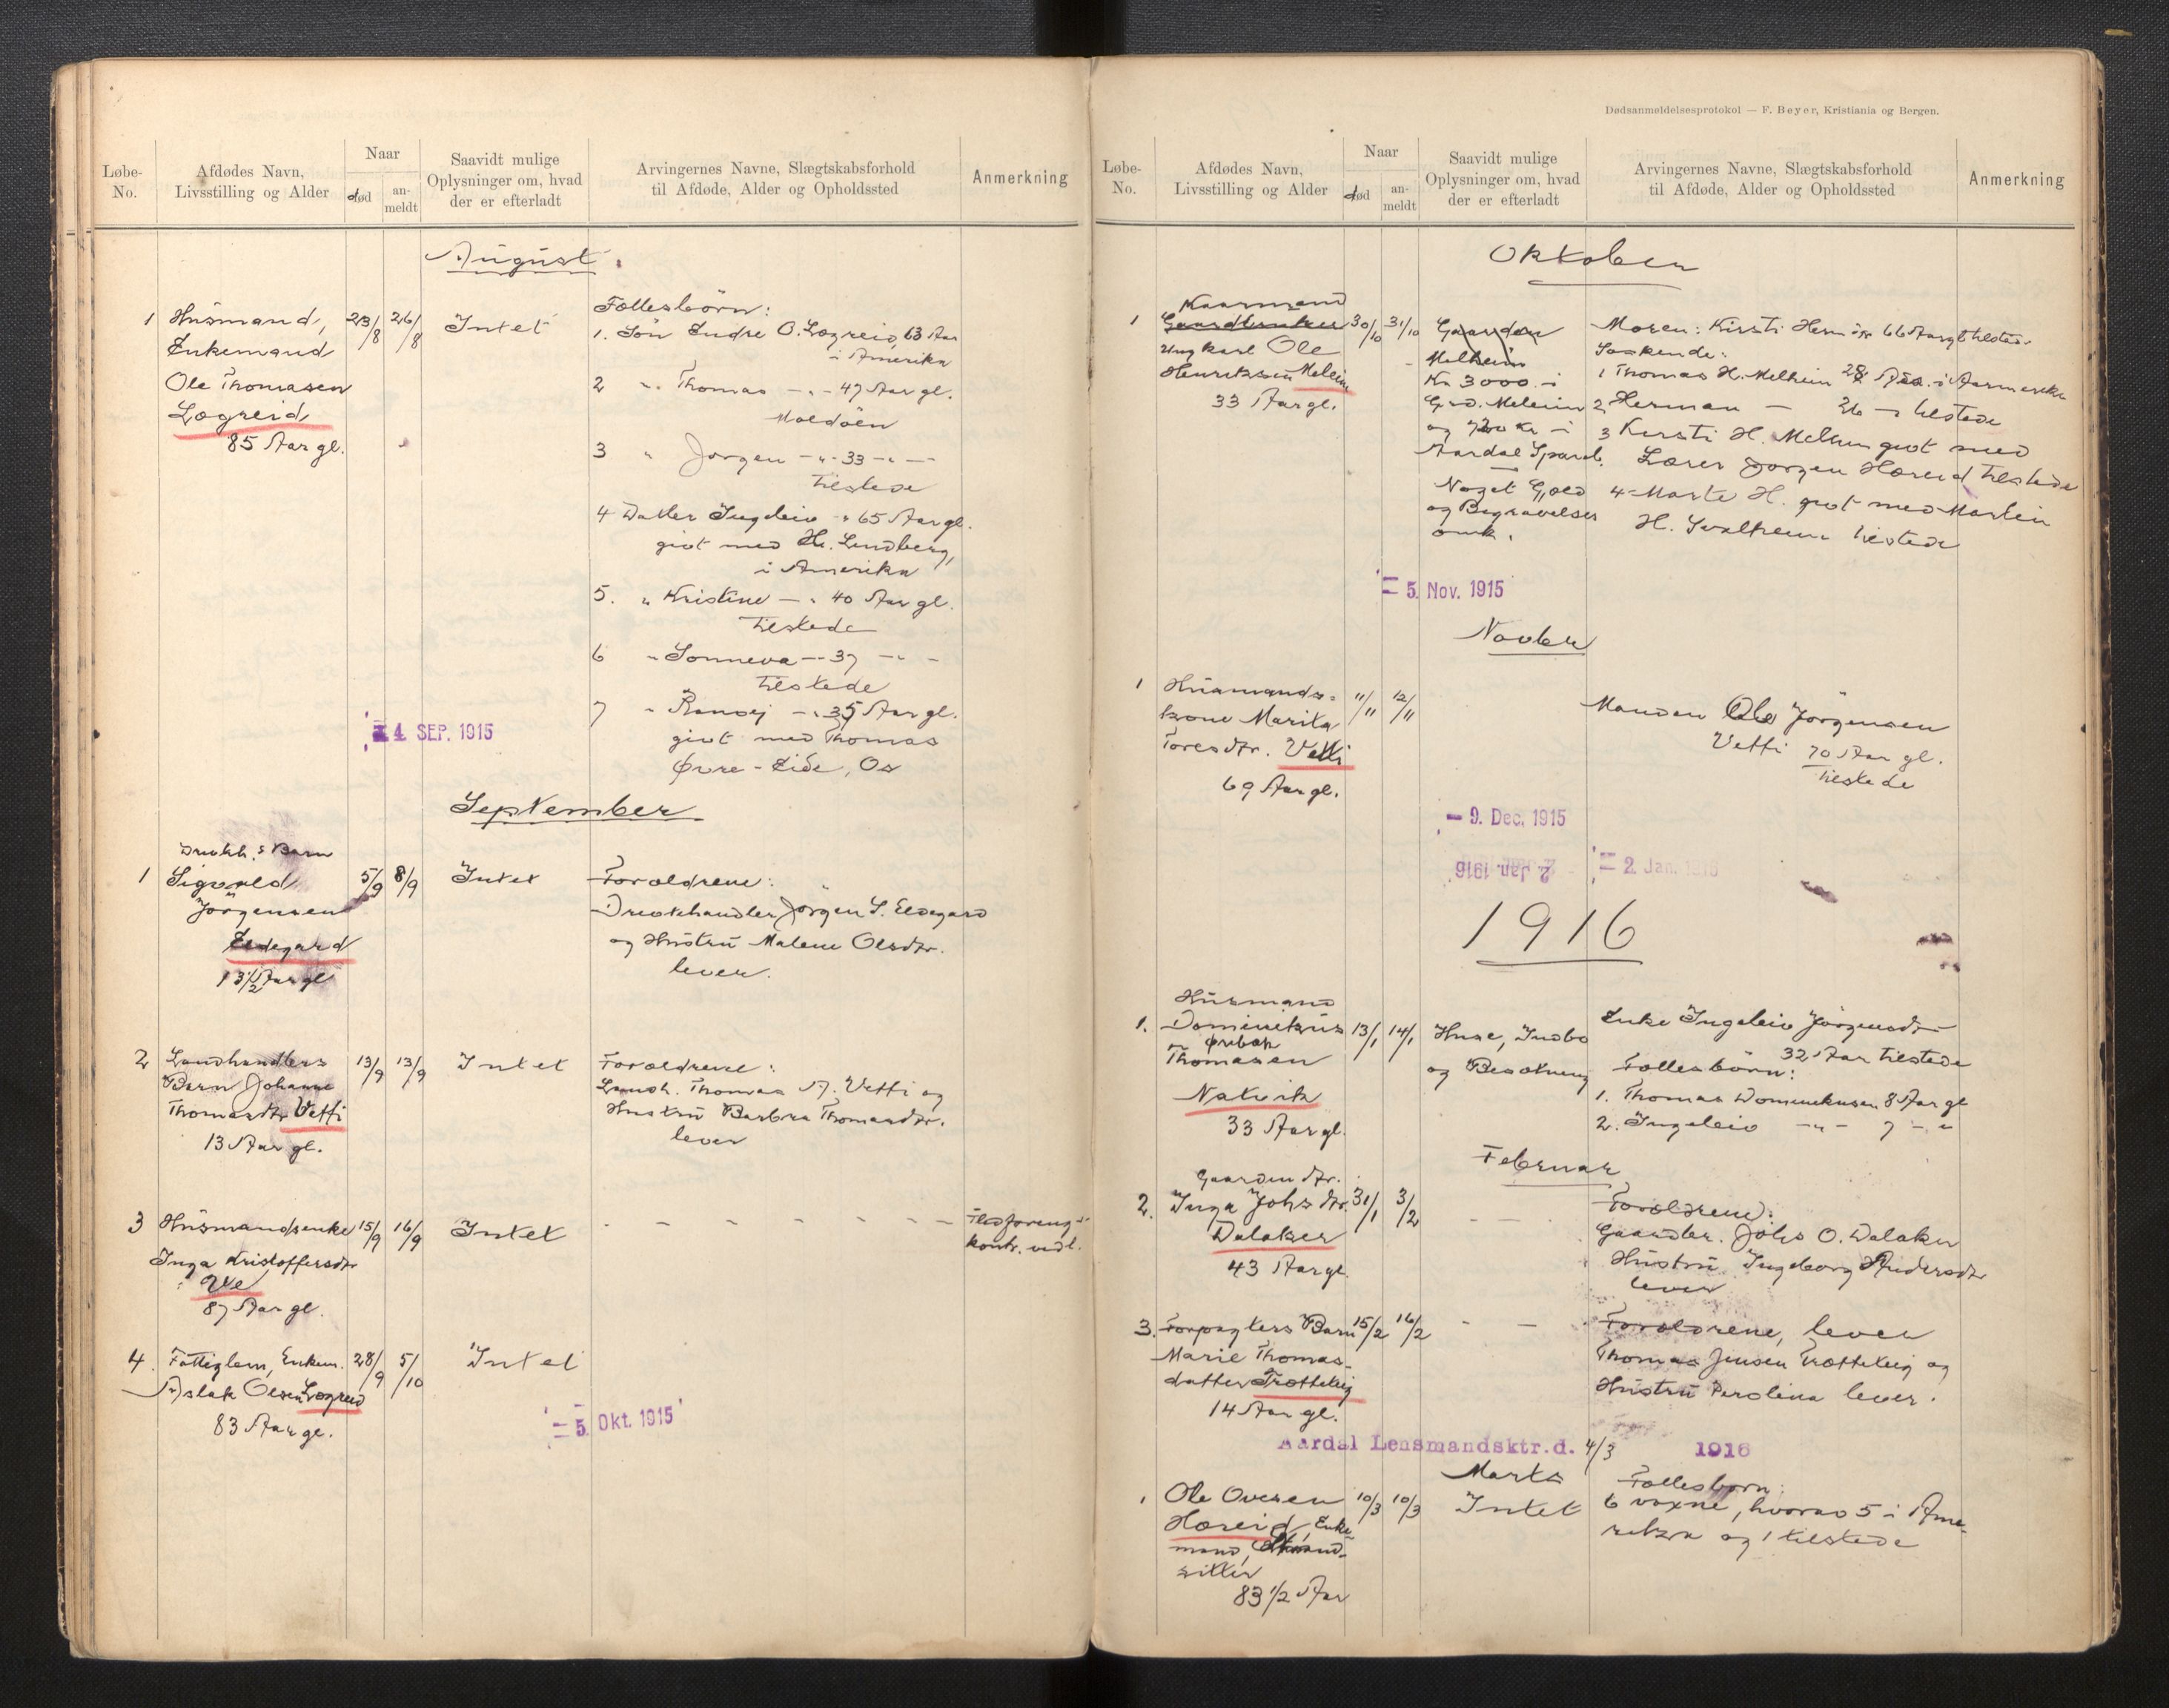 Løbe-
No.
Afdødes Navn,
Livsstilling og Alder
Naar
død
an-
meldt
Saavidt mulige
Oplysninger om, hvad
der er efterladt
Arvingernes Navne, Slægtskabsforhold
til Afdøde, Alder og Opholdssted
Anmerkning
August
1 Husmand, 23/8 26/8 Intet
Enkemand
Ole Thomasen
Lægreid
85 Aar gl.
Fællesbörn:
1. Sön Endre O. Lægreid, 63 Aar
i Amerika
2 " Thomas - " - 47 Aar gl.
Moldöen
3 " Jørgen - " - 33 - " -
tilstede
4 Datter Ingeleiv " 65 Aar gl.
givt med H. Lindberg,
i Amerika
5. " Kristine - " 40 Aar gl.
tilstede
6 " Sonneva - - 37 - " -
tilstede
7 " Ranvej - " 35 Aar gl.
givt med Thomas
Øvre-Eide, Os
4 SEP. 1915
September
Drukh.s Barn
1 Sigvald 5/9 8/9 Intet
Jörgensen
Eldegard
13 1/2 Aar gl
Forældrene:
Jörgen S. Eldegard
og Hustru Malene Olsdtr.
lever.
2 Landhandlers 13/9 13/9 Intet
Barn Johanne
Thomasdtr Vetti
13 Aar gl.
Forældrene:
Landh. Thomas A. Vetti og
Hustru Barbra Thomasdtr.
lever
3 Husmandsenke 15/9 16/9 Intet - - - - - - -
Inga Kristoffersdtr
Ve
87 Aar gl.
kontr. vedl.
4. Fattiglem, Enkem. 28/9 5/10 Intet
Aslak Olsen Lægreid
83 Aar gl.
5. Okt. 1915
Dødsanmeldelsesprotokol — F. Beyer, Kristiania og Bergen.
Løbe-
No.
Afdødes Navn,
Livsstilling og Alder
Naar
død
an-
meldt
Saavidt mulige
Oplysninger om, hvad
der er efterladt
Arvingernes Navne, Slægtskabsforhold
til Afdøde, Alder og Opholdssted
Anmerkning
Oktober
Kaarmand
1 Gaardbruker 30/10 31/10
Ungkarl Ole
Henriksen Melein
33 Aar gl.
Gaarden
Melheim
Kr 3000 i
Grd. Meleim
og 700 Kr i
Aardal Spareb.
Noget Gjæld
og Begravelses
omk.
Moren: Kirsti Hermdtr 66 Aar gl tilstede
Søskende:
1 Thomas H. Melheim 28 Aar i Amerika
2 Herman - 26 - tilstede
3 Kirsti H. Melheim givt med
Lærer Jørgen Hæreid tilstede
4 Marte H. givt med Martin
H. Svalheim tilstede
5. Nov. 1915
Novbr
1 Husmands- 11/11 12/11
kone Marita
Toresdtr. Vetti
69 Aar gl.
Manden Ole Jörgensen
Vetti 70 Aar gl.
tilstede
9. Dec. 1915
2 Jan 1916
2. Jan. 1916
1916
Husmand
1. Dominikus 13/1 14/1 Huse, Indbo
Ørebak
Thomasen og Besætning
Natvik
33 Aar gl.
Enke Ingeleiv Jörgensdtr
32 Aar tilstede
Fællesbörn:
1. Thomas Dominikusen 8 Aar gl
2. Ingeleiv - " - 7 - "
Februar
2. Inga Johsdtr. 31/1 3/2 - -
Dalaker
43 Aar gl.
Forældrene:
Gaardbr. Johs O. Dalaker
Hustru Ingeborg Andersdtr
lever
3. Forpagters Barn 15/2 16/2 - -
Marie Thomas-
datter Trætteteig
14 Aar gl.
Forældrene, lever
Thomas Jensen Trætteteig og
Hustru Perolina lever.
Aardal Lensmandsktr. d. 4/3 1916
Marts
1 Ole Ovesen 10/3 10/3 Intet
Hæreid, Enke-
mand, Strand-
sitter
83 1/2 Aar
Fællesbørn:
6 voxne, hvorav 5 i Ame-
rika og 1 tilstede